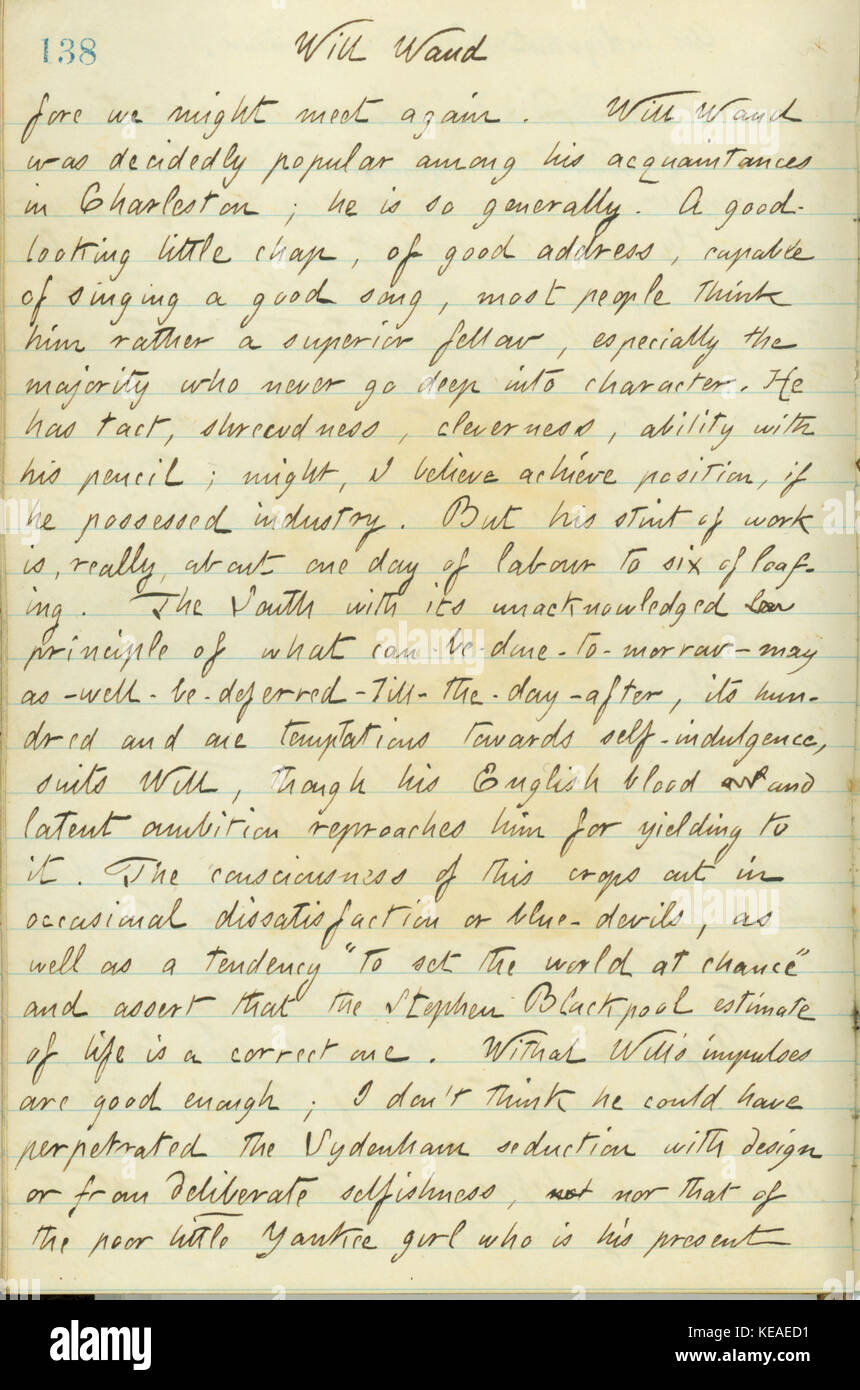 138 Will Waud
fore we might meet again. Will Waud
was decidedly popular among his acquaintances
in Charleston; he is so generally. A good-
looking little chap, of good address, capable
of singing a good song, most people think
him rather a superior fellow, especially the
majority who never go deep into character. He
has tact, shrewdness, cleverness, ability with
his pencil; might, I believe achieve position, if
he possessed industry. But his stint of work
is, really, about one day of labour to six of loaf-
ing. The South with its unacknowledged
principle of what can-be-done-to-morrow-may
as-well-be-deferred-till-the-day-after, its hun-
dred and one temptations towards self-indulgence,
suits Will, though his English blood and
latent ambition reproaches him for yielding to
it. The consciousness of this crops out in
occasional dissatisfaction or blue-devils, as
well as a tendency "to set the world at chance"
and assert that the Stephen Blackpool estimate
of life is a correct one. Withal Will's impulses
are good enough; I don't think he could have
perpetrated the Sydenham seduction with design
or from deliberate selfishness, not nor that of
the poor little Yankee girl who is his present
alamy stock photo
KEAED1
www.alamy.com